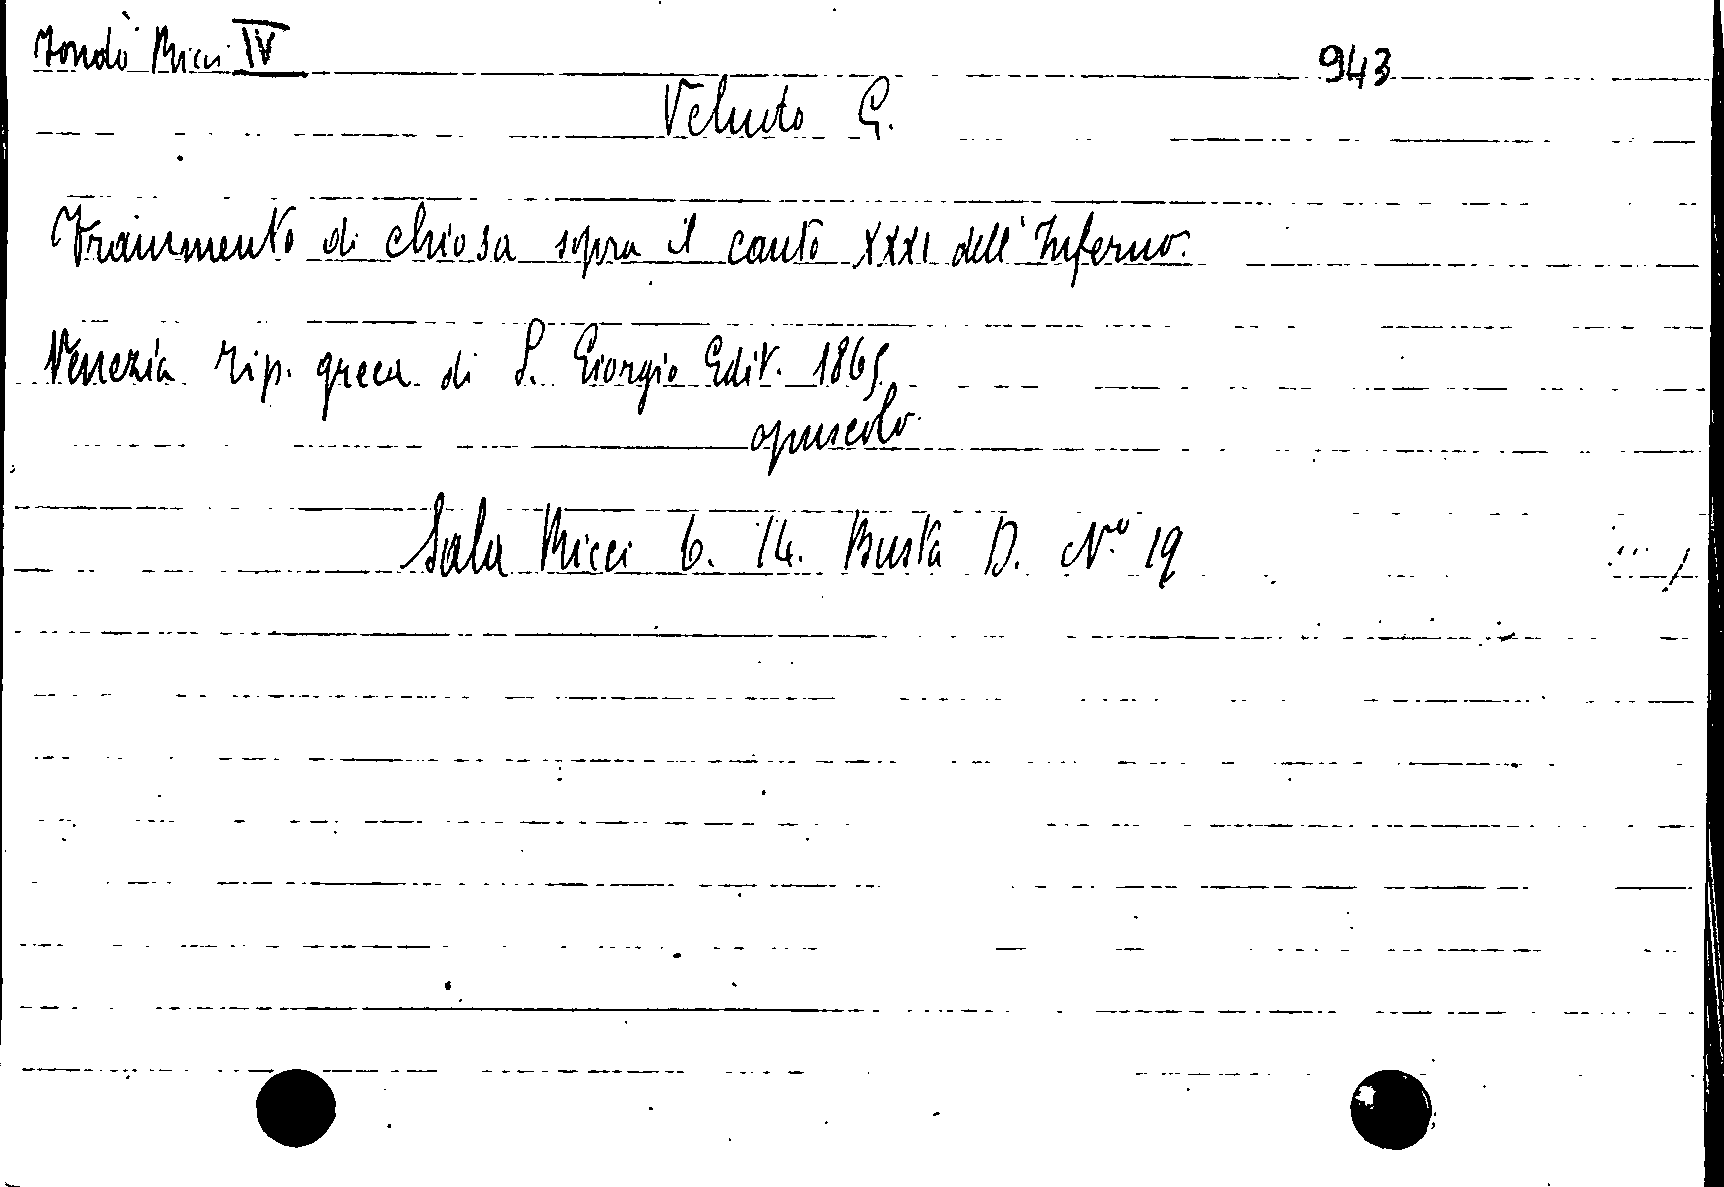 Fondo Ricci IV
943
Veludo G.
Frammento di chiosa sopra il canto XXXI dell'Inferno.
Venezia tip. greca di S. Giorgio Edit. 1865
opuscolo.
Sala Ricci 6. 14. Busta D. N.º 19